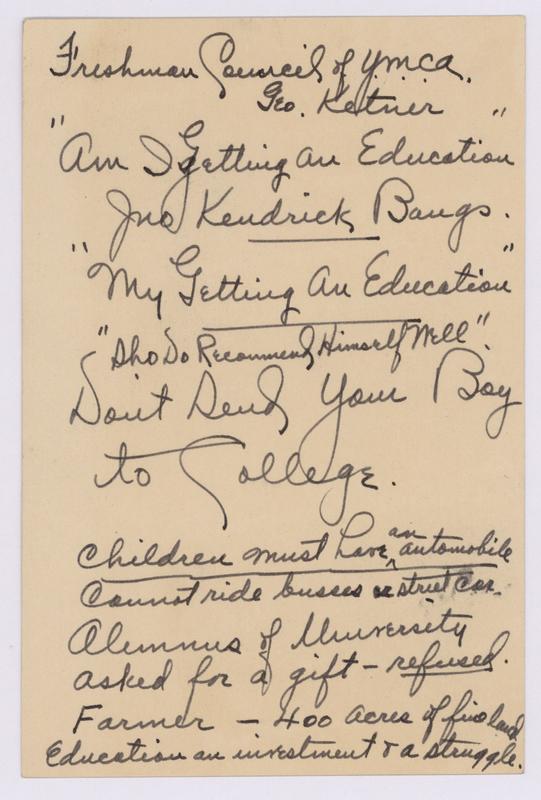 Freshman Council of Y.M.C.A.
Geo. Ketner
"Am I Getting An Education"
Jno Kendrick Bangs.
"My Getting An Education"
"Sho Do Recommend Himself Well".
Don't Send Your Boy
to College.
Children must have an automobile
Cannot ride busses or street car.
Alumnus of University
asked for a gift - refused.
Farmer - 400 acres of fine land
Education an investment & a struggle.